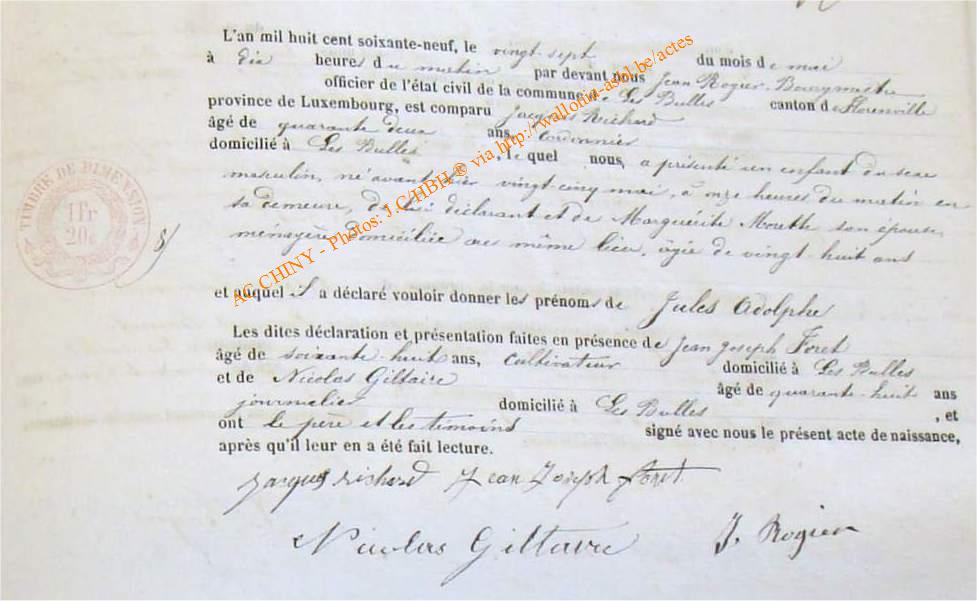 L'an mil huit cent soixante-neuf, le vingt-sept du mois de mai
à dix heures du matin par devant nous Jean Rogier, Bourgmestre
officier de l'état civil de la commune de Les Bulles canton de Florenville
province de Luxembourg, est comparu Jacques Richard
âgé de quarante deux ans, cordonnier
domicilié à Les Bulles, lequel nous, a présenté un enfant du sexe
masculin, né avant hier vingt-cinq mai, à onze heures du matin en
sa demeure, de lui déclarant et de Marguérite Morette son épouse,
ménagère domiciliée au même lieu, âgée de vingt-huit ans
et auquel il a déclaré vouloir donner les prénoms de Jules Adolphe
Les dites déclaration et présentation faites en présence de Jean Joseph Foret
âgé de soixante-huit ans, cultivateur domicilié à Les Bulles
et de Nicolas Giltaire âgé de quarante-huit ans
journalier domicilié à Les Bulles, et
ont le père et les témoins signé avec nous le présent acte de naissance,
après qu'il leur en a été fait lecture.
jacques richard Jean Joseph foret
Nicolas Giltaire J. Rogier
TIMBRE DE DIMENSION
1 Fr
20c
AC CHINY - Photos: J.C/HBH ® via http://wallonia-asbl.be/actes